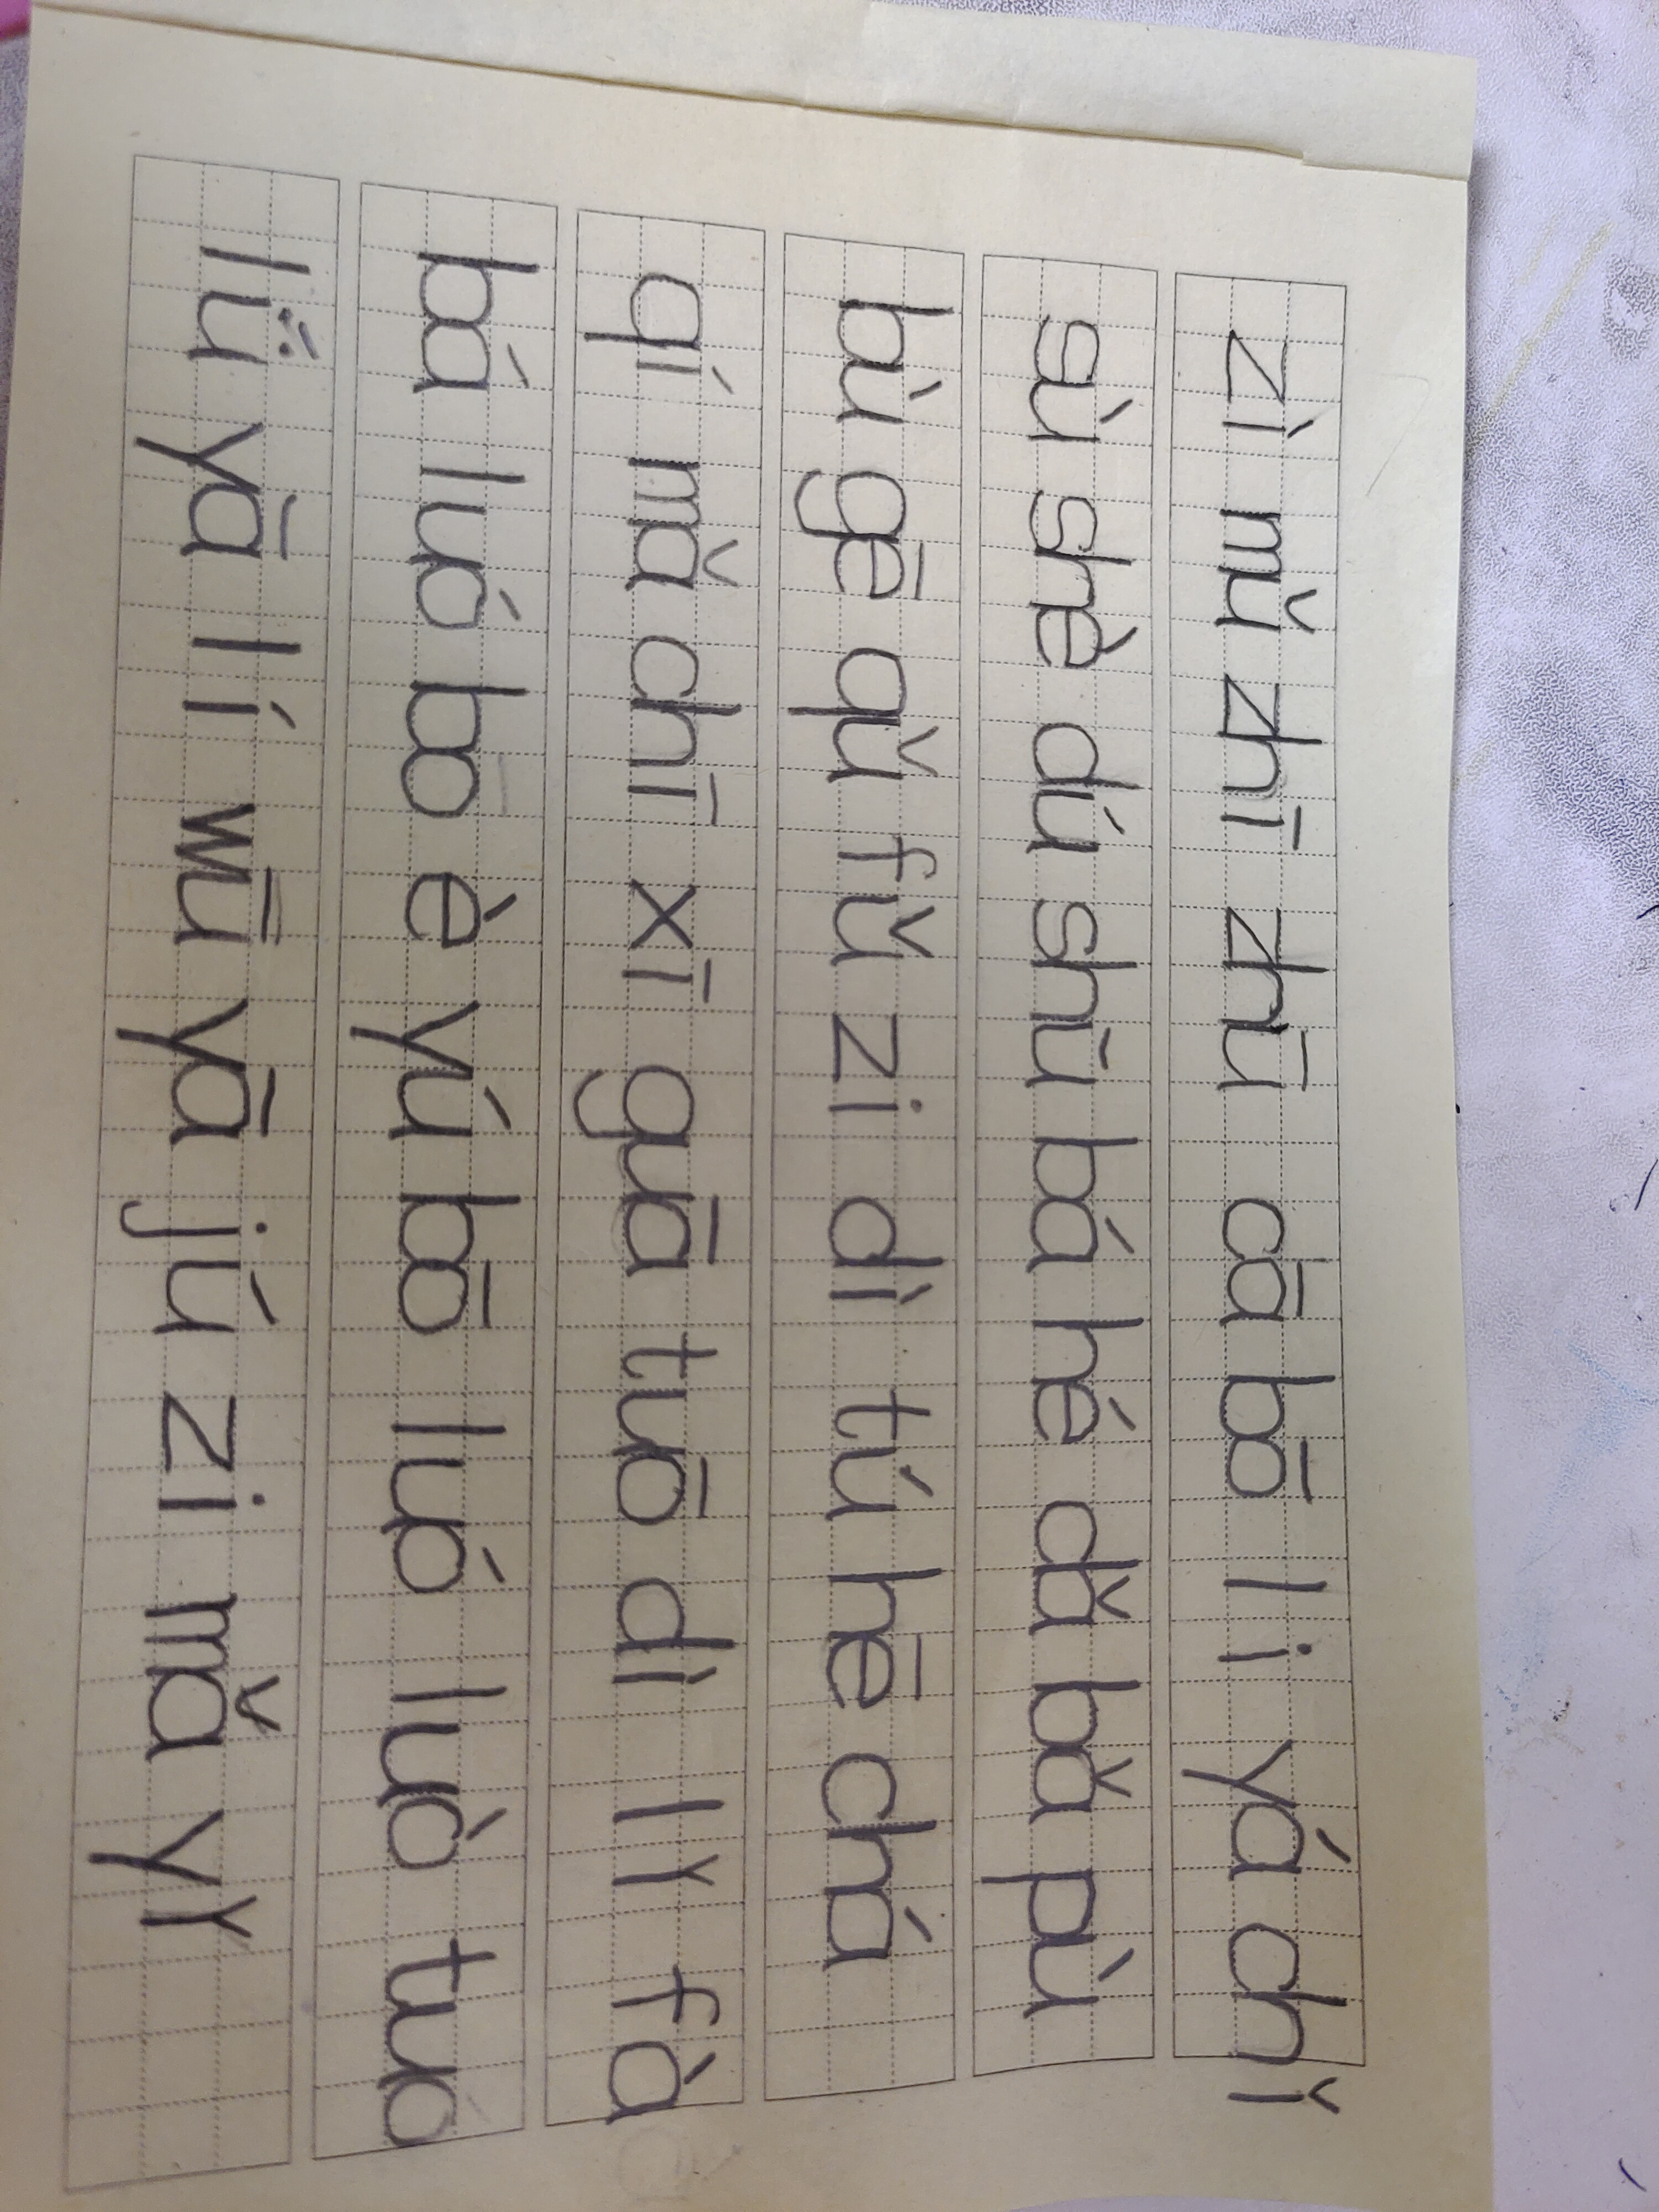 zì mǔ zhī zhū cā bō li yá chǐ
sù shè dú shù bá hé dǎ bǎ pù
bù gē qǔ fǔ zi dì tú hē chá
qí mǎ chī xī guā tuō dì lǐ fà
bá luó bo è yú bō luó luò tuo
lǘ yā lí wū yā jú zi mǎ yǐ